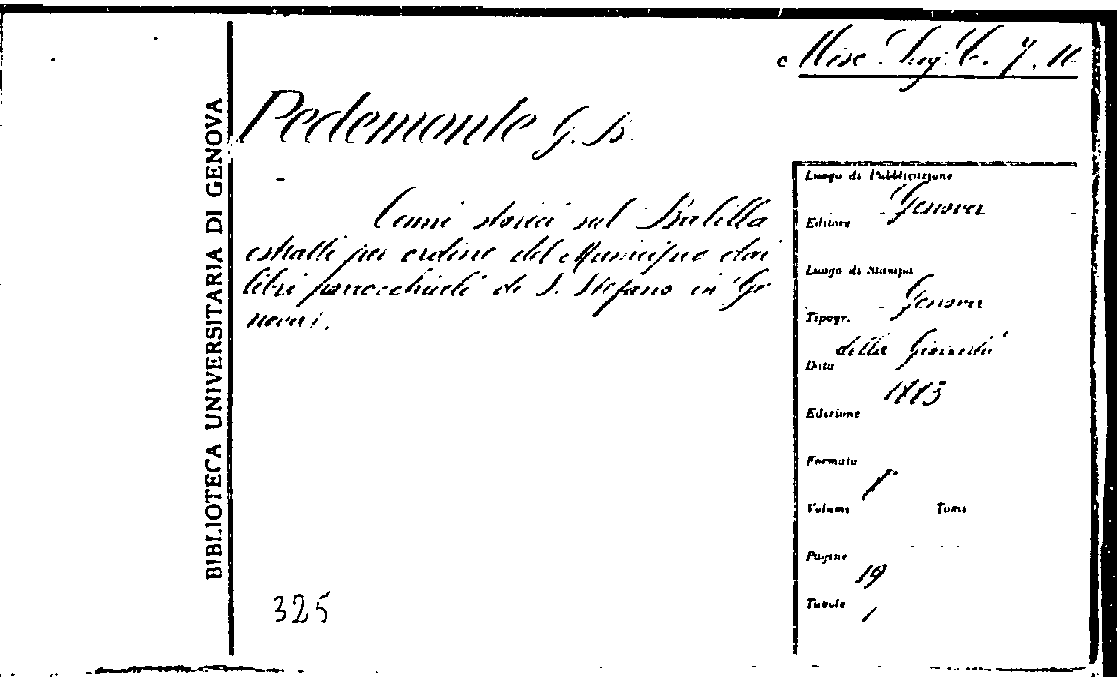 Misc. Lig. C. 7. 11
Pedemonte G. B.
BIBLIOTECA UNIVERSITARIA DI GENOVA
Cenni storici sul Balilla
estratti per ordine del Municipio dai
libri parrocchiali di S. Stefano in Ge
nova.
Luogo di Pubblicazione
Genova
Editore
Luogo di Stampa
Genova
Tipogr.
della Gioventù
Data
Edizione
Formato
8°
Volumi Tomi
Pagine
19
Tavole
1
325